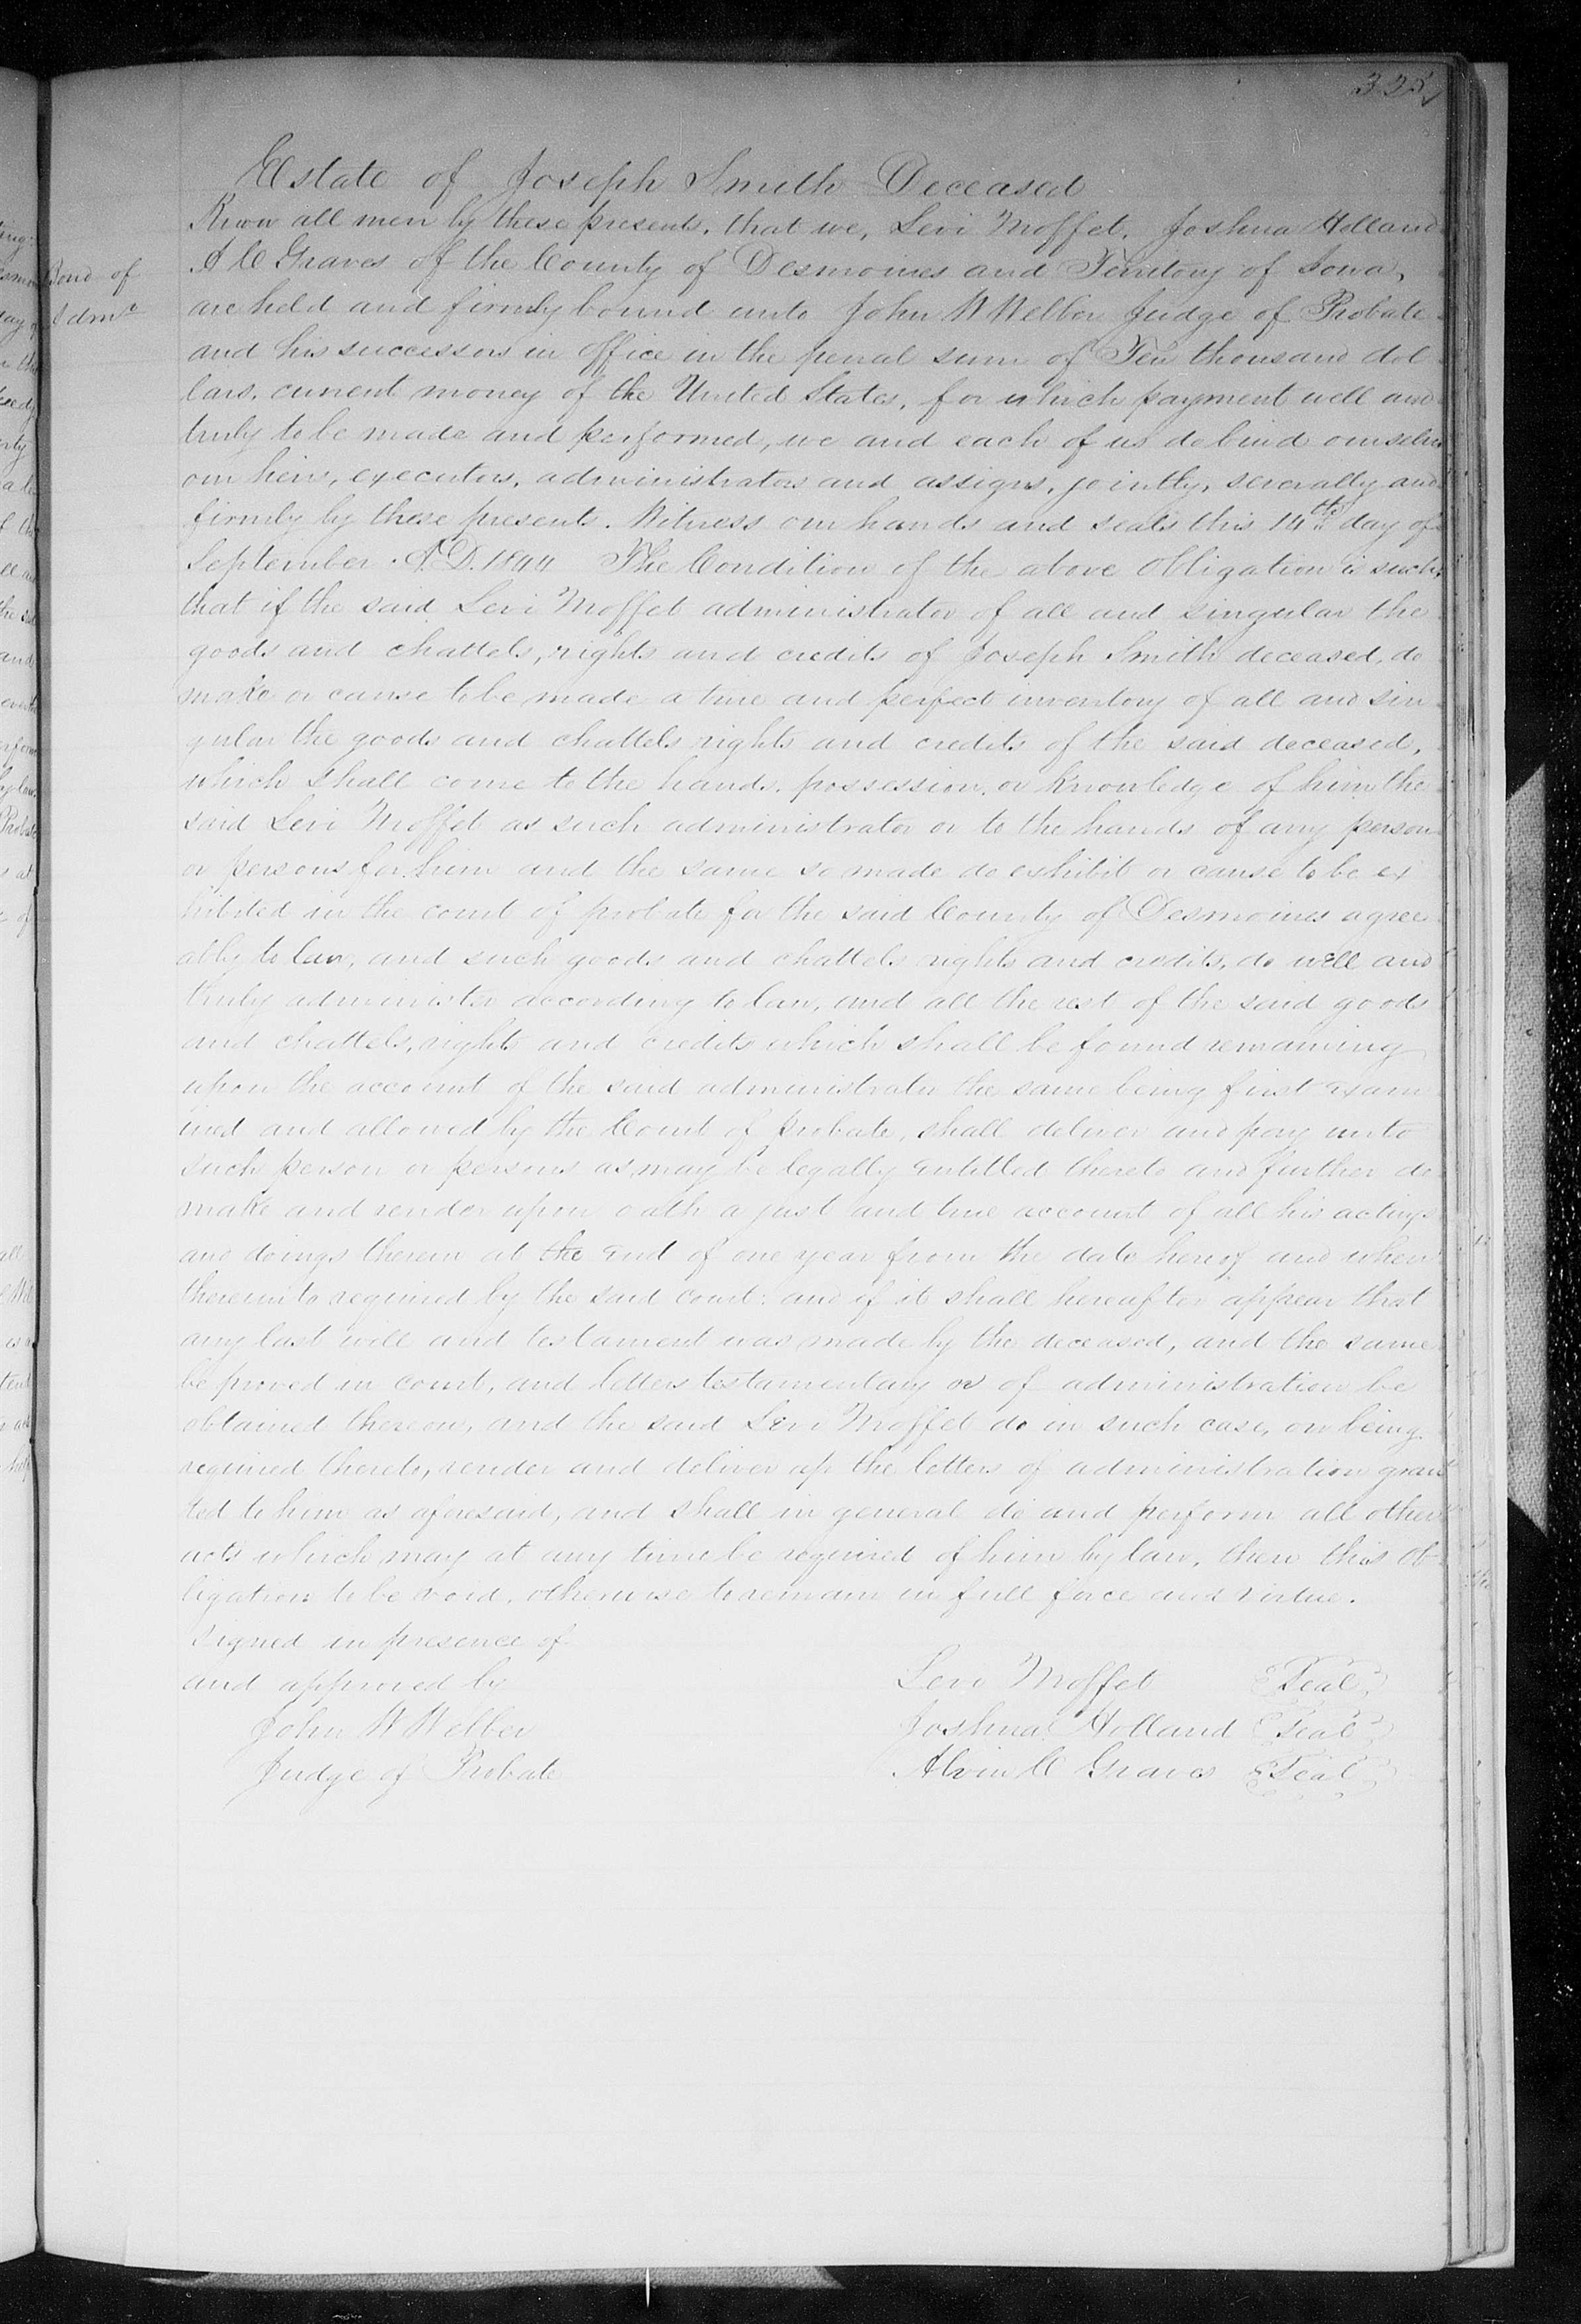 325
Estate of Joseph Smith Deceased
Know all men by these presents, that we, Levi Moffet, Joshua Holland
A C Graves of the County of Desmoines and Territory of Iowa,
Bond of
Admr
are held and firmly bound unto John W Webber Judge of Probate
and his successors in office in the penal sum of Ten thousand dol
lars, current money of the United States, for which payment well and
truly to be made and performed, we and each of us do bind ourselves
our heirs, executors, administrators and assigns, jointly, severally and
firmly by these presents. Witness our hands and seals this 14th day of
September A.D. 1844 The Condition of the above Obligation is such,
that if the said Levi Moffet administrator of all and singular the
goods and chattels, rights and credits of Joseph Smith deceased, do
make or cause to be made a true and perfect inventory of all and sin
gular the goods and chattels rights and credits of the said deceased,
which shall come to the hands, possession, or knowledge of him the
said Levi Moffet as such administrator or to the hands of any person
or persons for him and the same so made do exhibit or cause to be ex
hibited in the court of probate for the said County of Desmoines agree
ably to law, and such goods and chattels rights and credits, do well and
truly administer according to law, and all the rest of the said goods
and chattels, rights and credits which shall be found remaining
upon the account of the said administrator the same being first exam
ined and allowed by the Court of probate, shall deliver and pay unto
such person or persons as may be legally entitled thereto and further do
make and render upon oath a just and true account of all his actings
and doings therein at the end of one year from the date hereof and when
thereunto required by the said court: and if it shall hereafter appear that
any last will and testament was made by the deceased, and the same
be proved in court, and letters testamentary or of administration be
obtained thereon, and the said Levi Moffet do in such case, on being
required thereto, render and deliver up the letters of administration gran
ted to him as aforesaid, and shall in general do and perform all other
acts which may at any time be required of him by law, then this ob
ligation to be void, otherwise to remain in full force and virtue.
Signed in presence of
and approved by Levi Moffet Seal
John W Webber Joshua Holland Seal
Judge of Probate Alvin C Graves Seal